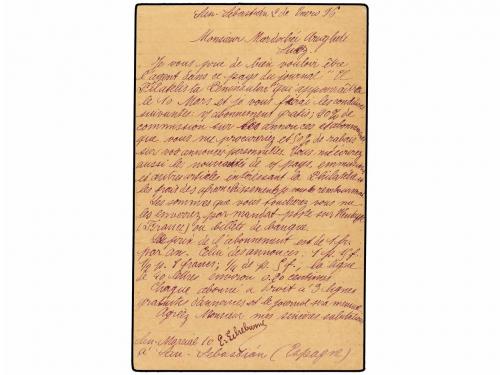 San Sebastian 2 de Enero 96
Monsieur Mardochée
Suez
Je vous prie de bien vouloir être
l'agent dans ce pays du journal "El
Filatelista Consensular" qui
le 10 Mars et je vous ferais les conditions
suivantes: 1/ abonnement gratis; 20% de
commission sur les annonces et abonnements
que vous me procurerez et 50% de rabais
sur vos annonces personnelles. Vous
aussi les nouveautés de ce pays
et articles intéressant la Philatélie
les frais des affranchissements je vous le
Les sommes que vous toucherez vous me
les enverrez par mandat-poste sur Hendaye
(France) ou billets de banque.
Le prix de l'abonnement est de 1 fr.
par an. Celui des annonces: 1 p.
1/2 p. francs; 1/4 de p. 5 f., la ligne
de 40 lettres environ 0.20 centimes
Chaque abonné a droit à 3 lignes
gratuites d'annonces et le journal sera
Agréez Monsieur mes sincères salutations
San Marcial 10
à San Sebastián (Espagne)